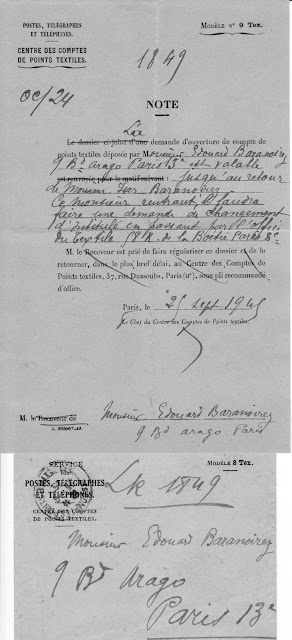 POSTES, TÉLÉGRAPHES
ET TÉLÉPHONES.
CENTRE DES COMPTES
DE POINTS TEXTILES.
MODÈLE Nº 9 Tex.
1849
OC/24
NOTE
La
Le dossier ci-joint d'une demande d'ouverture de compte de
points textiles déposée par Monsieur Edouard Baranoirez
9 Bd Arago Paris 13e est valable
est renvoyée pour le motif suivant : jusqu'au retour
de Monsieur Iser Baranoirez
Ce monsieur rentrant il faudra
faire une demande de changement
d'intitulé en passant par l'office
du textile rue de la Boétie Paris 8e
M. le Receveur est prié de faire régulariser ce dossier et de le
retourner, dans le plus bref délai, au Centre des Comptes de
Points textiles, 37, rue Dussoubs, Paris (IIe), sous pli recommandé
d'office.
Paris, le 25 sept 1945
Le Chef du Centre des Comptes de Points textiles,
M. le Receveur de
Monsieur Edouard Baranoirez
9 Bd Arago Paris
SERVICE
POSTES, TÉLÉGRAPHES
ET TÉLÉPHONES.
CENTRE DES COMPTES
DE POINTS TEXTILES.
MODÈLE 8 Tex.
LK 1849
Monsieur Edouard Baranoirez
9 Bd Arago
Paris 13e